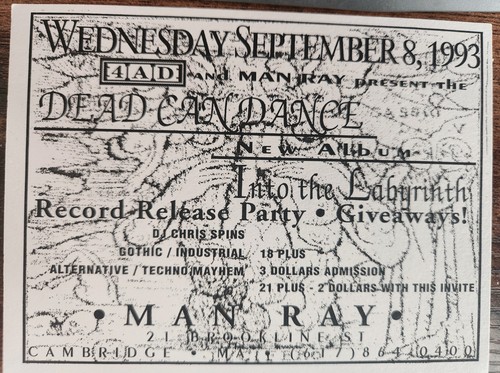 WEDNESDAY SEPTEMBER 8, 1993
4AD AND MAN RAY PRESENT THE
DEAD CAN DANCE
NEW ALBUM
Into the Labyrinth
Record Release Party • Giveaways!
DJ CHRIS SPINS
GOTHIC / INDUSTRIAL 18 PLUS
ALTERNATIVE / TECHNO MAYHEM 3 DOLLARS ADMISSION
21 PLUS - 2 DOLLARS WITH THIS INVITE
• MAN RAY •
21 BROOKLINE ST
CAMBRIDGE • MA • (617) 864-0400